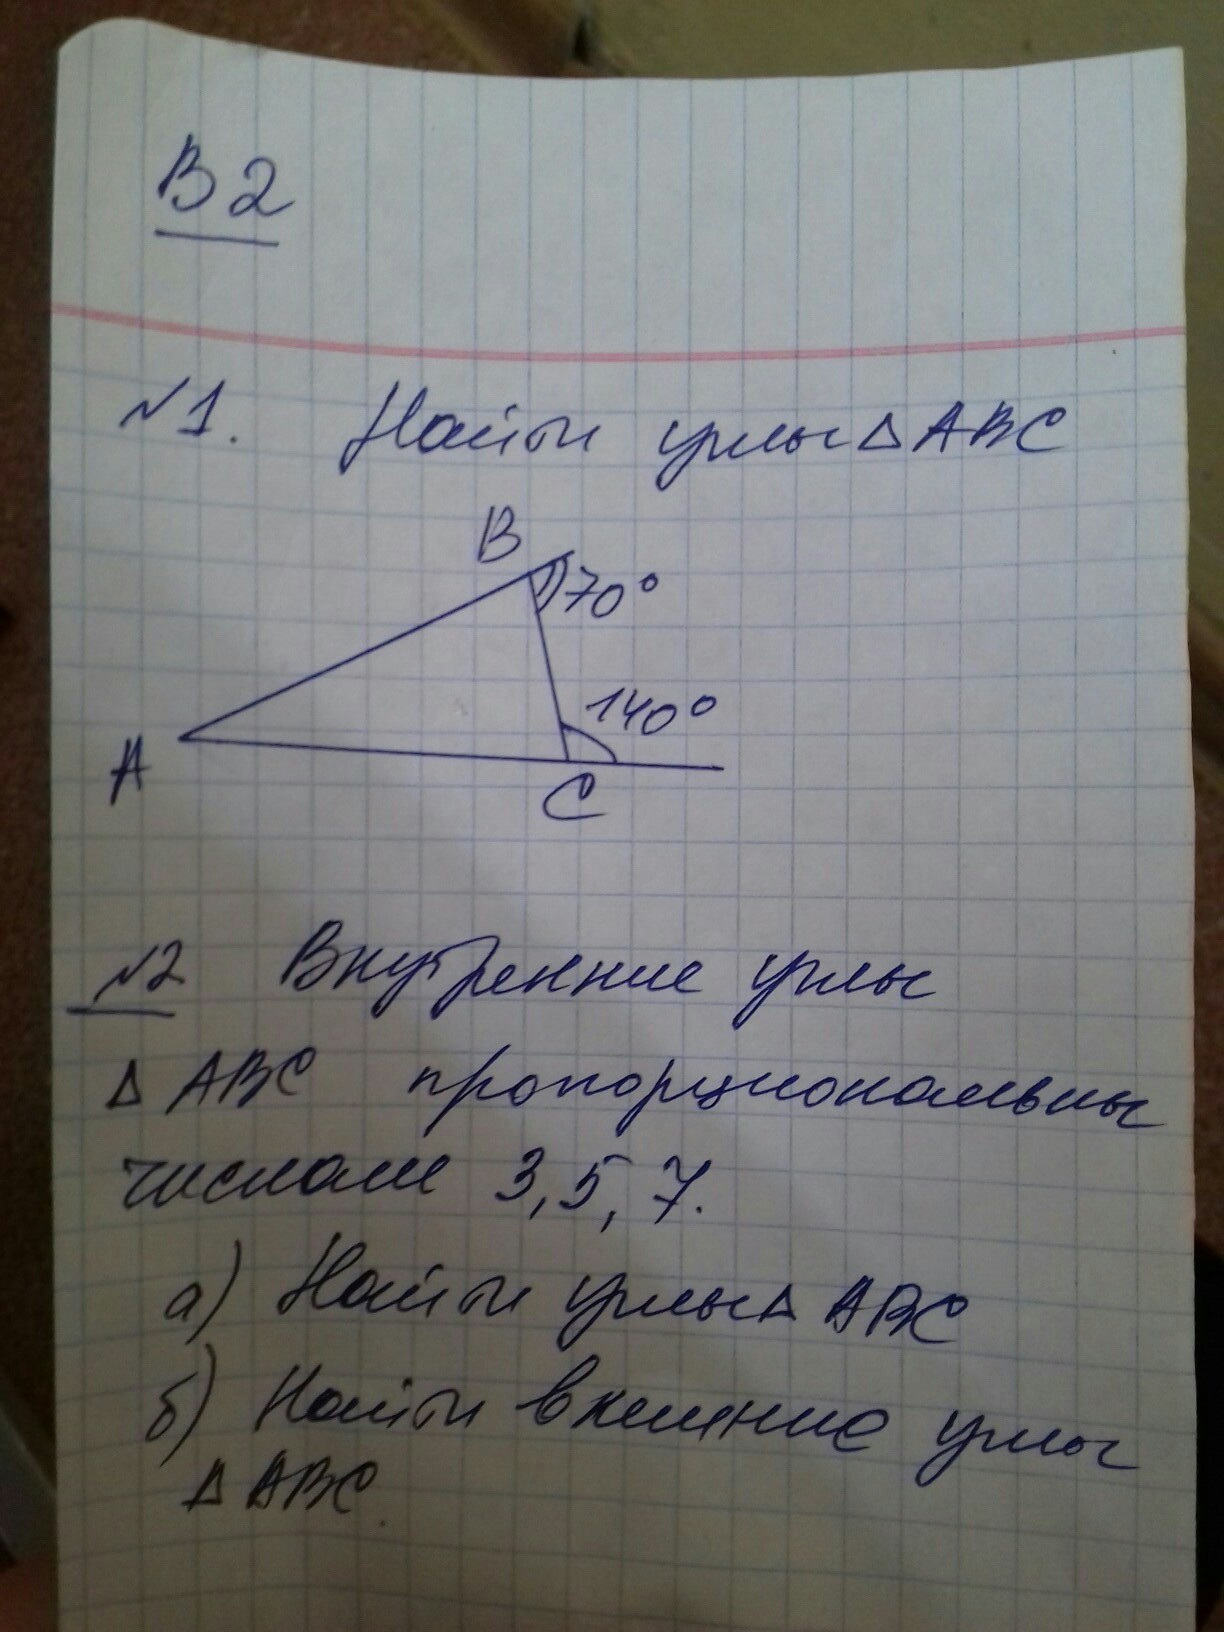 В2
№1. Найти углы △ АВС
В
70°
140°
А
С
№2 Внутренние углы
△ АВС пропорциональны
числам 3, 5, 7.
а) Найти углы △ АВС
б) Найти внешние углы
△ АВС.